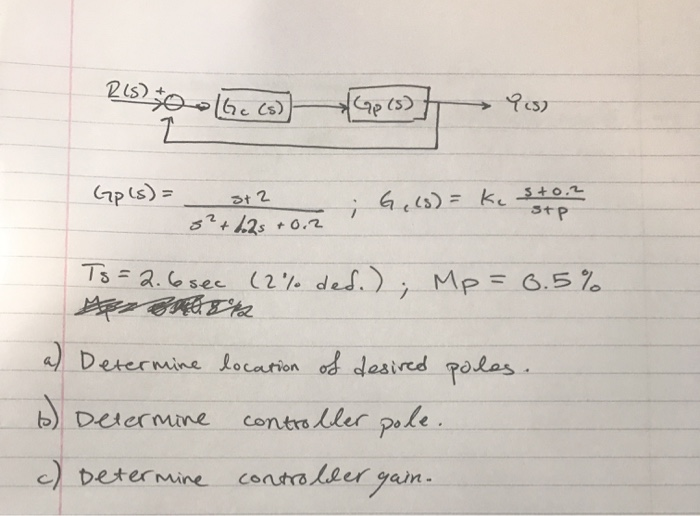 R(s) + Gc(s) Gp(s) Y(s)
Gp(s) = s+2 / s²+1.2s+0.2 ; Gc(s) = Kc s+0.2 / s+p
Ts = 2.6 sec (2% def.) ; Mp = 6.5%
a) Determine location of desired poles.
b) Determine controller pole.
c) Determine controller gain.